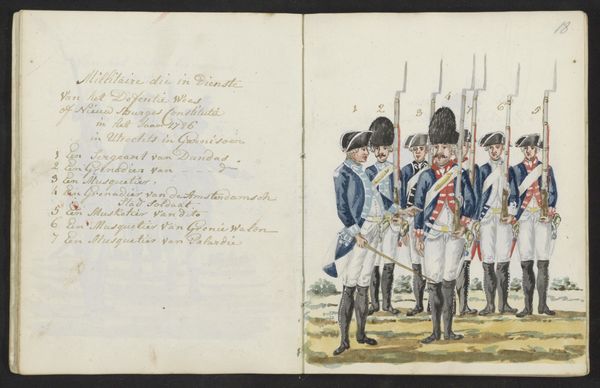 Millitaire die in dienste
van het Defentie Wees
of Nieuw Burges Constitutie
in het Jaar 1786
in Utrecht in Garnisoen
1 Een Sergeant van Dundas
2 Een Grenadier van d
3 Een Musquetier
4 Een Grenadier van de Amsterdamsch
Stad Soldaat
5 Een Musketier van dito
6 Een Musquetier van Gronie Waton
7 Een Musquetier van Palardie
18
1 2 3 4 7 6 5